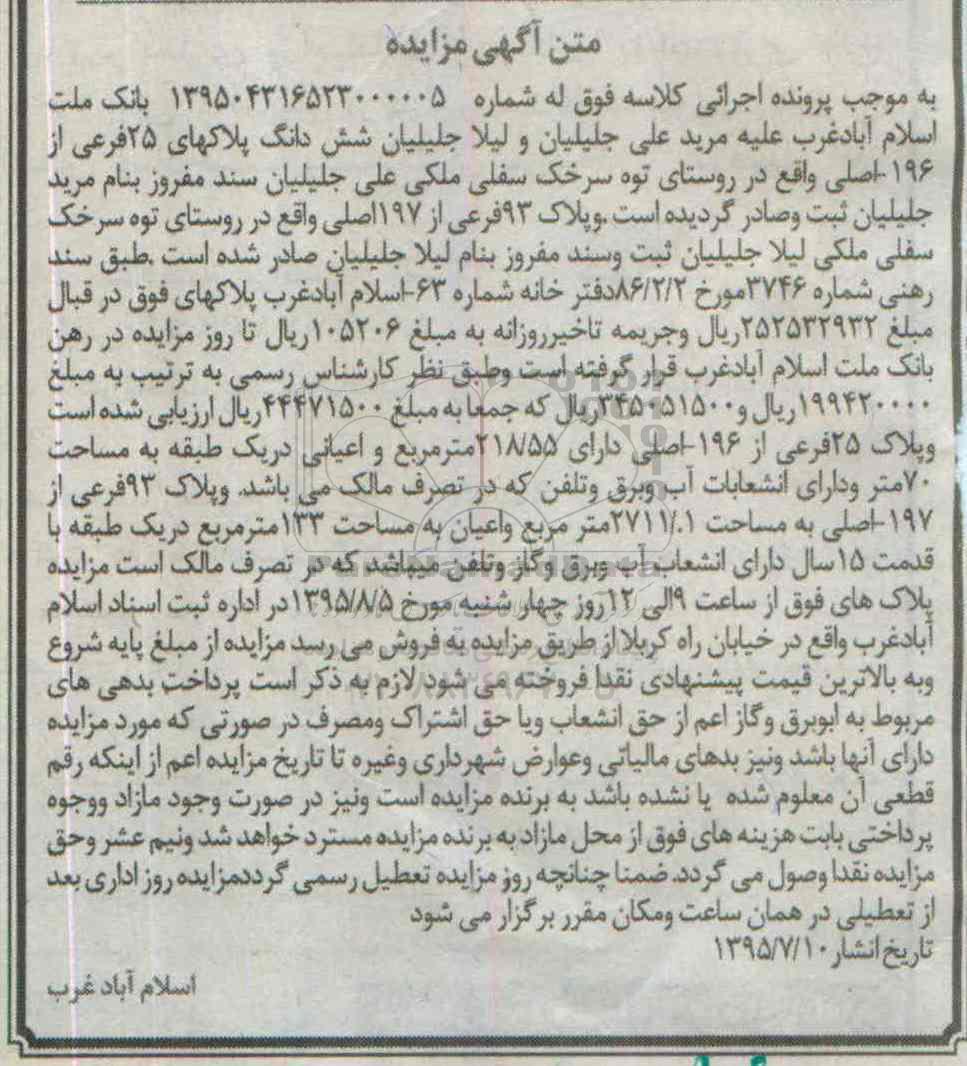 متن آگهی مزایده
به موجب پرونده اجرائی کلاسه فوق له شماره ۱۳۹۵۰۴۳۱۶۵۲۳۰۰۰۰۰۵ بانک ملت
اسلام آبادغرب علیه مرید علی جلیلیان و لیلا جلیلیان شش دانگ پلاکهای ۲۵فرعی از
۱۹۶-اصلی واقع در روستای توه سرخک سفلی ملکی علی جلیلیان سند مفروز بنام مرید
جلیلیان ثبت وصادر گردیده است .وپلاک ۹۳فرعی از ۱۹۷اصلی واقع در روستای توه سرخک
سفلی ملکی لیلا جلیلیان ثبت وسند مفروز بنام لیلا جلیلیان صادر شده است .طبق سند
رهنی شماره ۳۷۴۶مورخ ۸۶/۲/۲دفتر خانه شماره ۶۳-اسلام آبادغرب پلاکهای فوق در قبال
مبلغ ۲۵۲۵۳۲۹۳۲ریال وجریمه تاخیرروزانه به مبلغ ۱۰۵۲۰۶ریال تا روز مزایده در رهن
بانک ملت اسلام آبادغرب قرار گرفته است وطبق نظر کارشناس رسمی به ترتیب به مبلغ
۱۹۹۴۲۰۰۰۰ریال و۳۴۵۰۵۱۵۰۰ریال که جمعا به مبلغ ۴۴۴۷۱۵۰۰ریال ارزیابی شده است
وپلاک ۲۵فرعی از ۱۹۶-اصلی دارای ۲۱۸/۵۵مترمربع و اعیانی دریک طبقه به مساحت
۷۰متر ودارای انشعابات آب وبرق وتلفن که در تصرف مالک می باشد. وپلاک ۹۳فرعی از
۱۹۷-اصلی به مساحت ۲۷۱۱/.۱متر مربع واعیان به مساحت ۱۳۳مترمربع دریک طبقه با
قدمت ۱۵سال دارای انشعاب آب وبرق وگاز وتلفن میباشد که در تصرف مالک است مزایده
پلاک های فوق از ساعت ۹الی ۱۲روز چهار شنبه مورخ ۱۳۹۵/۸/۵در اداره ثبت اسناد اسلام
آبادغرب واقع در خیابان راه کربلا از طریق مزایده به فروش می رسد مزایده از مبلغ پایه شروع
وبه بالاترین قیمت پیشنهادی نقدا فروخته می شود لازم به ذکر است پرداخت بدهی های
مربوط به ابوبرق وگاز اعم از حق انشعاب ویا حق اشتراک ومصرف در صورتی که مورد مزایده
دارای آنها باشد ونیز بدهای مالیاتی وعوارض شهرداری وغیره تا تاریخ مزایده اعم از اینکه رقم
قطعی آن معلوم شده یا نشده باشد به برنده مزایده است ونیز در صورت وجود مازاد ووجوه
پرداختی بابت هزینه های فوق از محل مازاد به برنده مزایده مسترد خواهد شد ونیم عشر وحق
مزایده نقدا وصول می گردد. ضمنا چنانچه روز مزایده تعطیل رسمی گرددمزایده روز اداری بعد
از تعطیلی در همان ساعت ومکان مقرر برگزار می شود
تاریخ انشار ۱۳۹۵/۷/۱۰
اسلام آباد غرب